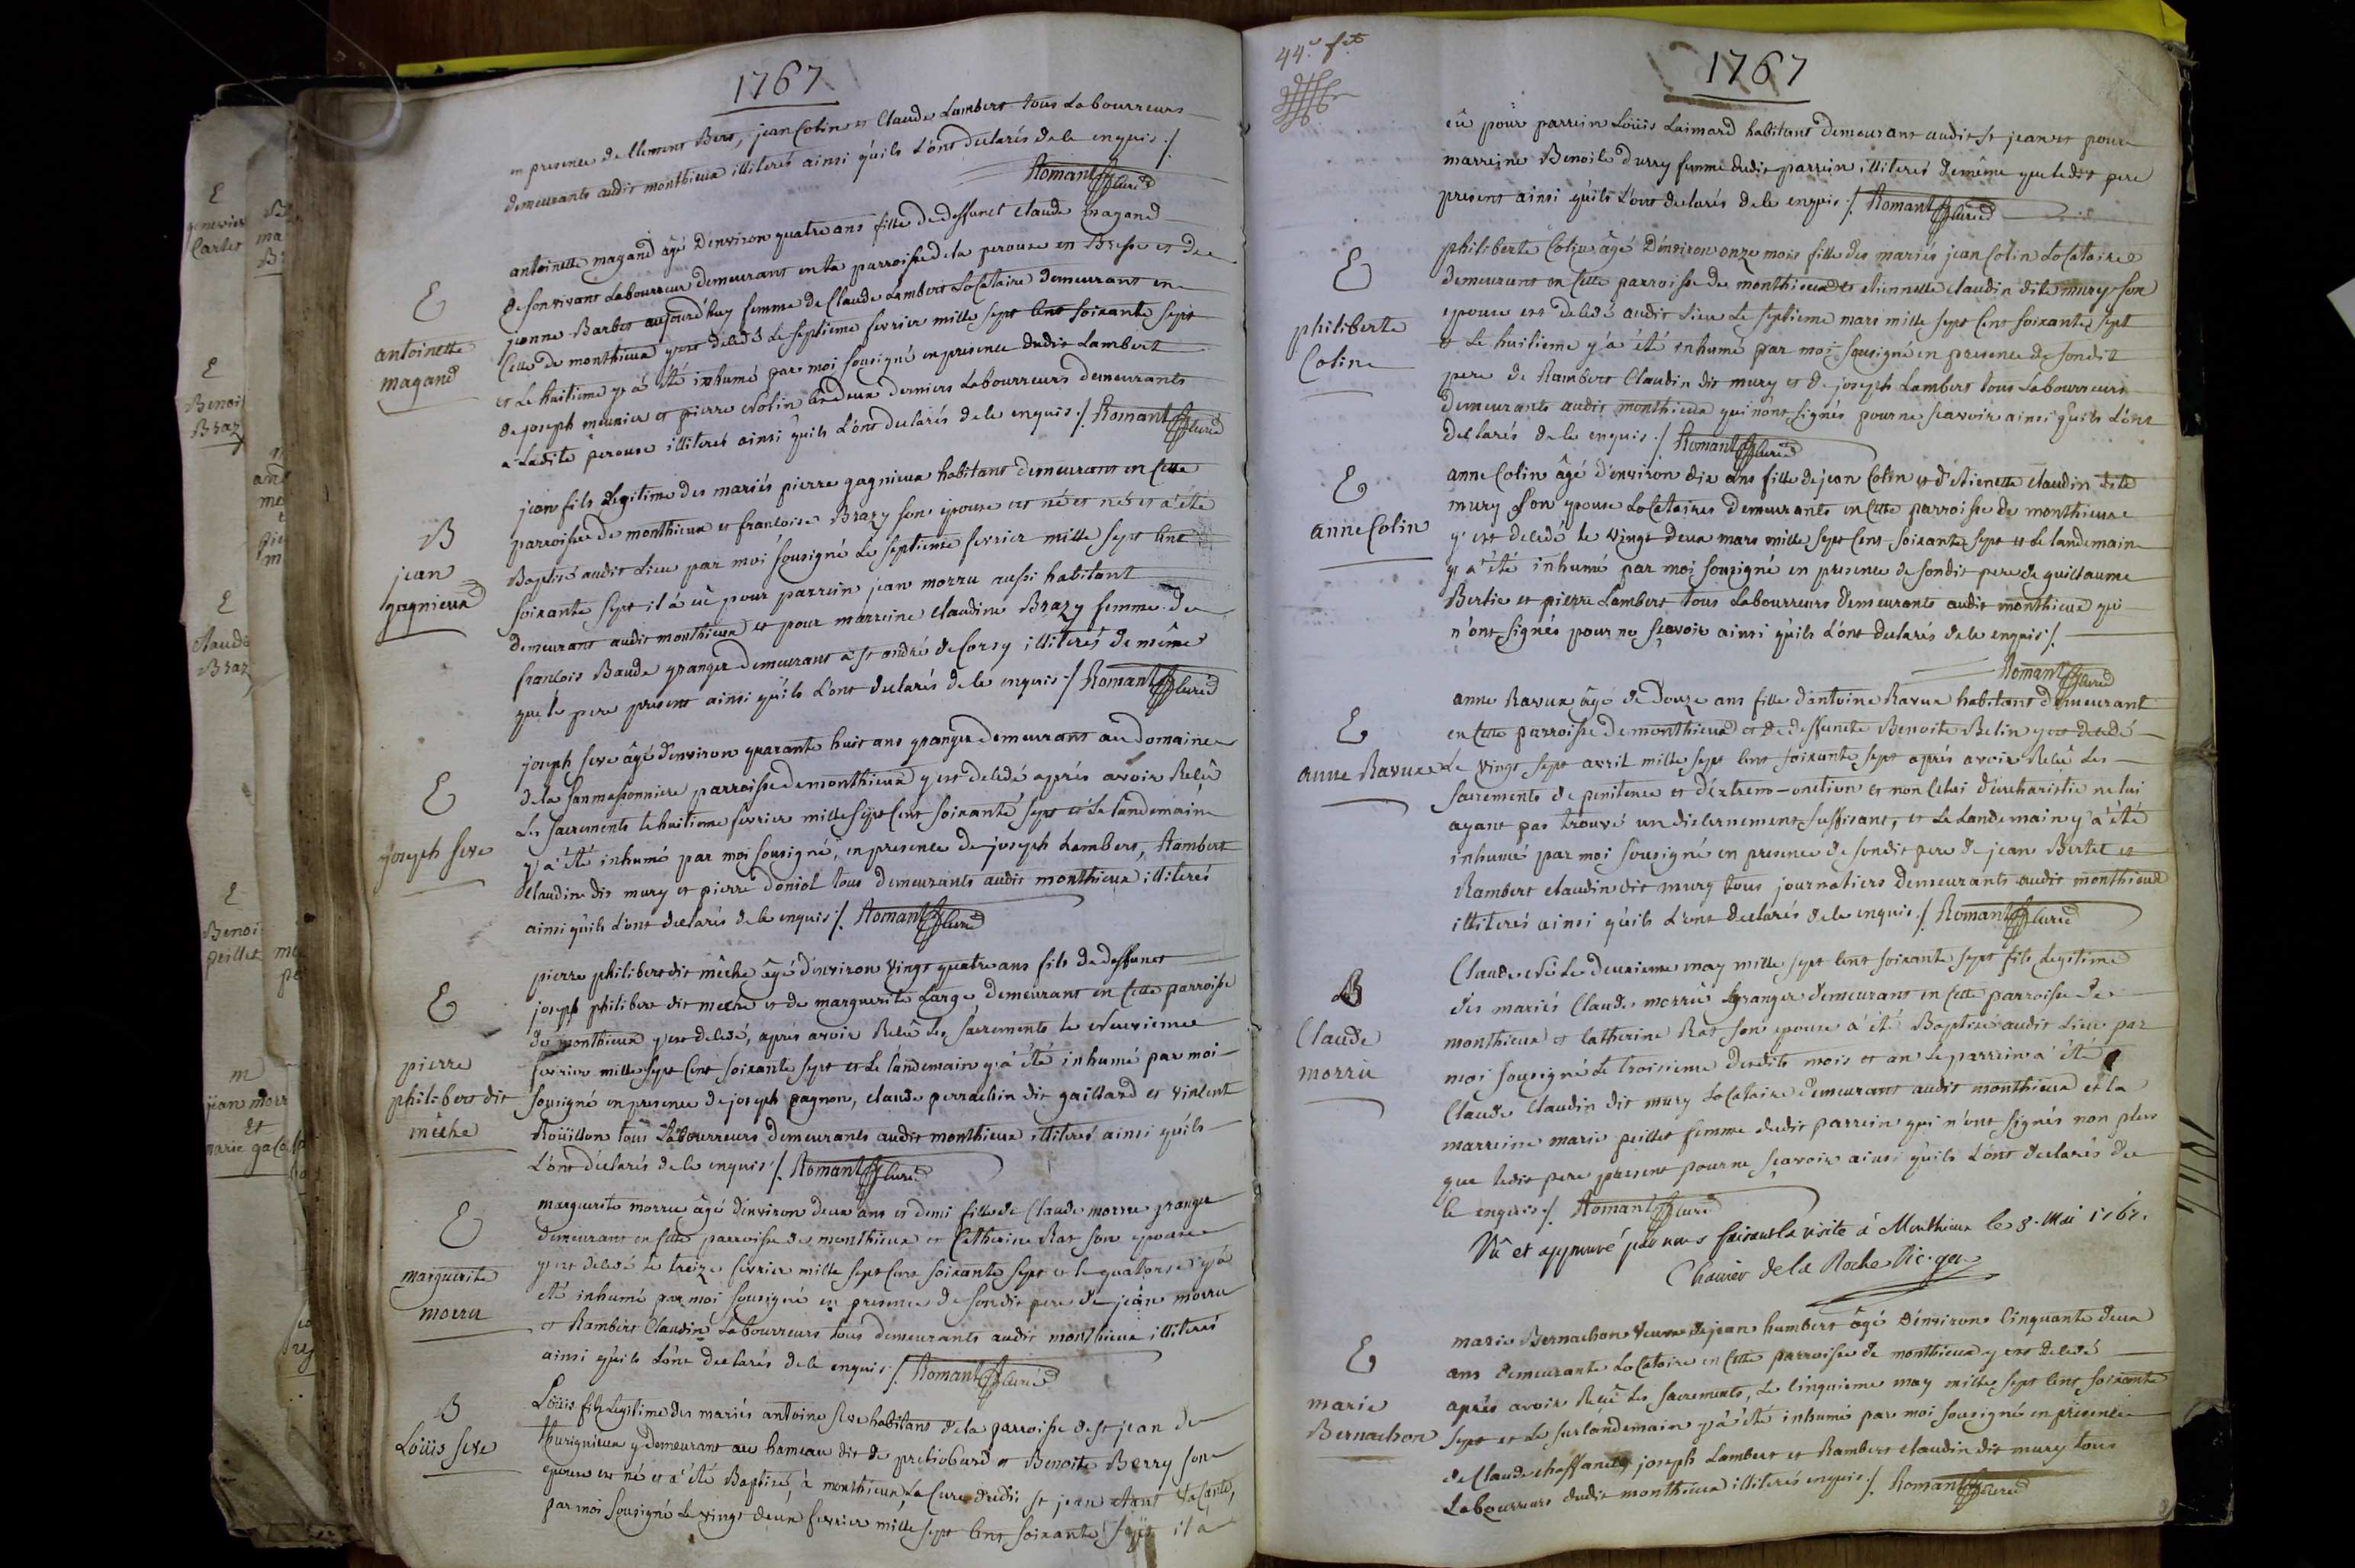 1767
en presence de Clement Bert, jean Colin et Claude Lambert tous Labourreurs
demeurants audit monthieux illiterés ainsi qu'ils L'ont declarés de le enquis ./.
Romant curé
E
antoinette
magand
antoinette magand âgé d'environ quatre ans fille de deffunct claude magand
de son vivant Labourreur demeurant en la parroisse de la perouse en Bresse et de
jeanne Barbet aujourd'huy femme de Claude Lambert Locataire demeurant en
Cette de monthieux y est decedé Le septieme fevrier mille sept Cent soixante sept
et Le huitieme y a été inhumé par moi sousigné en presence dudit Lambert
de joseph meunier et pierre Nolin Ces deux derniers Labourreurs demeurants
a Ladite perouse illiterés ainsi qu'ils L'ont declarés de le enquis ./. Romant curé
B
jean
gagnieux
jean fils Legitime des mariés pierre gagnieux habitant demeurant en Cette
parroisse de monthieux et francoise Brazy son epouse est né et né et a été
Baptisé audit Lieu par moi sousigné Le septieme fevrier mille sept Cent
soixante sept il a eü pour parrein jean morru aussi habitant
demeurant audit monthieux et pour marreine claudine Brazy femme de
francois Baude granger demeurant a st andré de Corsy illiterés de même
que le pere present ainsi qu'ils L'ont declarés de le enquis ./. Romant curé
E
joseph seve
joseph seve âgé d'environ quarante huit ans granger demeurant au domaine
de la sanmassonniere parroisse de monthieux y est decedé aprés avoir Reçû
Les sacrements le huitieme fevrier mille sept Cent soixante sept et Le landemain
y a été inhumé par moi sousigné, en presence de joseph Lambert, Rambert
claudin dit mury et pierre doniol tous demeurants audit monthieux illiterés
ainsi qu'ils L'ont declarés de le enquis ./. Romant curé
E
pierre
philibert dit
mêche
pierre philibert dit mêche âgé d'environ vingt quatre ans fils de deffunct
joseph philibert dit meche et de marguerite Large, demeurant en Cette parroisse
de monthieux y est decedé, aprés avoir Reçû Les sacrements le Neuvieme
fevrier mille sept Cent soixante sept et Le landemain y a été inhumé par moi
sousigné en presence de joseph pagnon, claude perrachin dit gaillard et vincent
Roüillon tous Labourreurs demeurants audit monthieux illiterés ainsi qu'ils
L'ont déclarés de le enquis ./. Romant curé
E
marguerite
morru
marguerite morru âgé d'environ deux ans et demi fille de Claude morru granger
demeurant en Cette parroisse de monthieux et Catherine Rat son epouse
y est decedé Le treize fevrier mille sept Cent soixante sept et le quatorse y a
été inhumé par moi sousigné en presence de sondit pere de jean morru
et Rambert Claudin Labourreurs tous demeurants audit monthieux illiterés
ainsi qu'ils L'ont declarés de le enquis ./. Romant curé
B
Loüis seve
Loüis fils Legitime des mariés antoine seve habitant de la parroisse de st jean de
thurignieux y demeurant au hameau dit de et Benoite Berry son
epouse est né et a été Baptisé, à monthieux, La Cure dudit st jean étant Vacante,
par moi sousigné Le vingt deux fevrier mille sept Cent soixante sept il a
44.e f.et
1767
eü pour parrein Loüis Laimard habitant demeurant audit st jean et pour
marreine Benoite durry femme dudit parrein illiterés de même que ledit pere
present ainsi qu'ils L'ont declarés de le enquis ./. Romant curé
E
philiberte
Colin
philiberte Colin âgé d'environ onze mois fille des mariés jean Colin Locataire
demeurant en Cette parroisse de monthieux et etiennette claudin dite mury son
epouse est decedé audit Lieu Le septieme mars mille sept Cent soixante sept
et Le huitieme y a été inhumé par moi sousigné en presence de sondit
pere de Rambert Claudin dit mury et de joseph Lambert tous Labourreurs
demeurants audit monthieux qui n'ont signés pour ne sçavoir ainsi qu'ils L'ont
declarés de le enquis ./. Romant curé
E
anne Colin
anne Colin âgé d'environ dix ans fille de jean Colin et d'etiennette claudin dite
mury son epouse Locataires demeurants en Cette parroisse de monthieux
y est decedé le vingt deux mars mille sept Cent soixante sept et Le landemain
y a été inhumé par moi sousigné en presence de sondit pere de guillaume
Bertie et pierre Lambert tous Labourreurs demeurants audit monthieux qui
n'ont signés pour ne sçavoir ainsi qu'ils L'ont declarés de le enquis ./.
Romant curé
E
anne Ravux
anne Ravux âgé de douze ans fille d'antoine Ravux habitant demeurant
en Cette parroisse de monthieux et de deffuncte Benoite Belin y est decedé
Le vingt sept avril mille sept Cent soixante sept aprés avoir Reçû Les
sacrements de penitence et d'extrem-onction et non Celui d'eucharistie ne lui
ayant pas trouvé un discernement suffisant, et Le Landemain y a été
inhumé par moi sousigné en presence de sondit pere de jean Bertet et
Rambert claudin dit mury tous journaliers demeurants audit monthieux
illiterés ainsi qu'ils L'ont declarés de le enquis ./. Romant curé
B
Claude
morru
Claude né Le deuxieme may mille sept Cent soixante sept fils Legitime
des mariés Claude morru granger demeurant en Cette parroisse de
monthieux et Catherine Rat son epouse a été Baptisé audit Lieu par
moi sousigné Le troisieme desdits mois et an Le parrein a été
Claude Claudin dit mury Locataire demeurant audit monthieux et la
marreine marie peillet femme dudit parrein qui n'ont signés non plus
que ledit pere present pour ne sçavoir ainsi qu'ils L'ont declarés de
le enquis ./. Romant curé
Vû et approuvé par nous faisant la visite à Monthieux le 8. Mai 1767.
Charrier de la Roche Vic. ga.
E
marie
Bernachon
marie Bernachon veuve de jean humbert âgé d'environ Cinquante deux
ans demeurante Locataire en Cette parroisse de monthieux y est decedé
aprés avoir Reçû Les sacrements, Le Cinquieme may mille sept Cent soixante
sept et Le surlandemain y a été inhumé par moi sousigné en presence
de Claude chaffanel joseph Lambert et Rambert claudin dit mury tous
Labourreurs dudit monthieux illiterés enquis ./. Romant curé